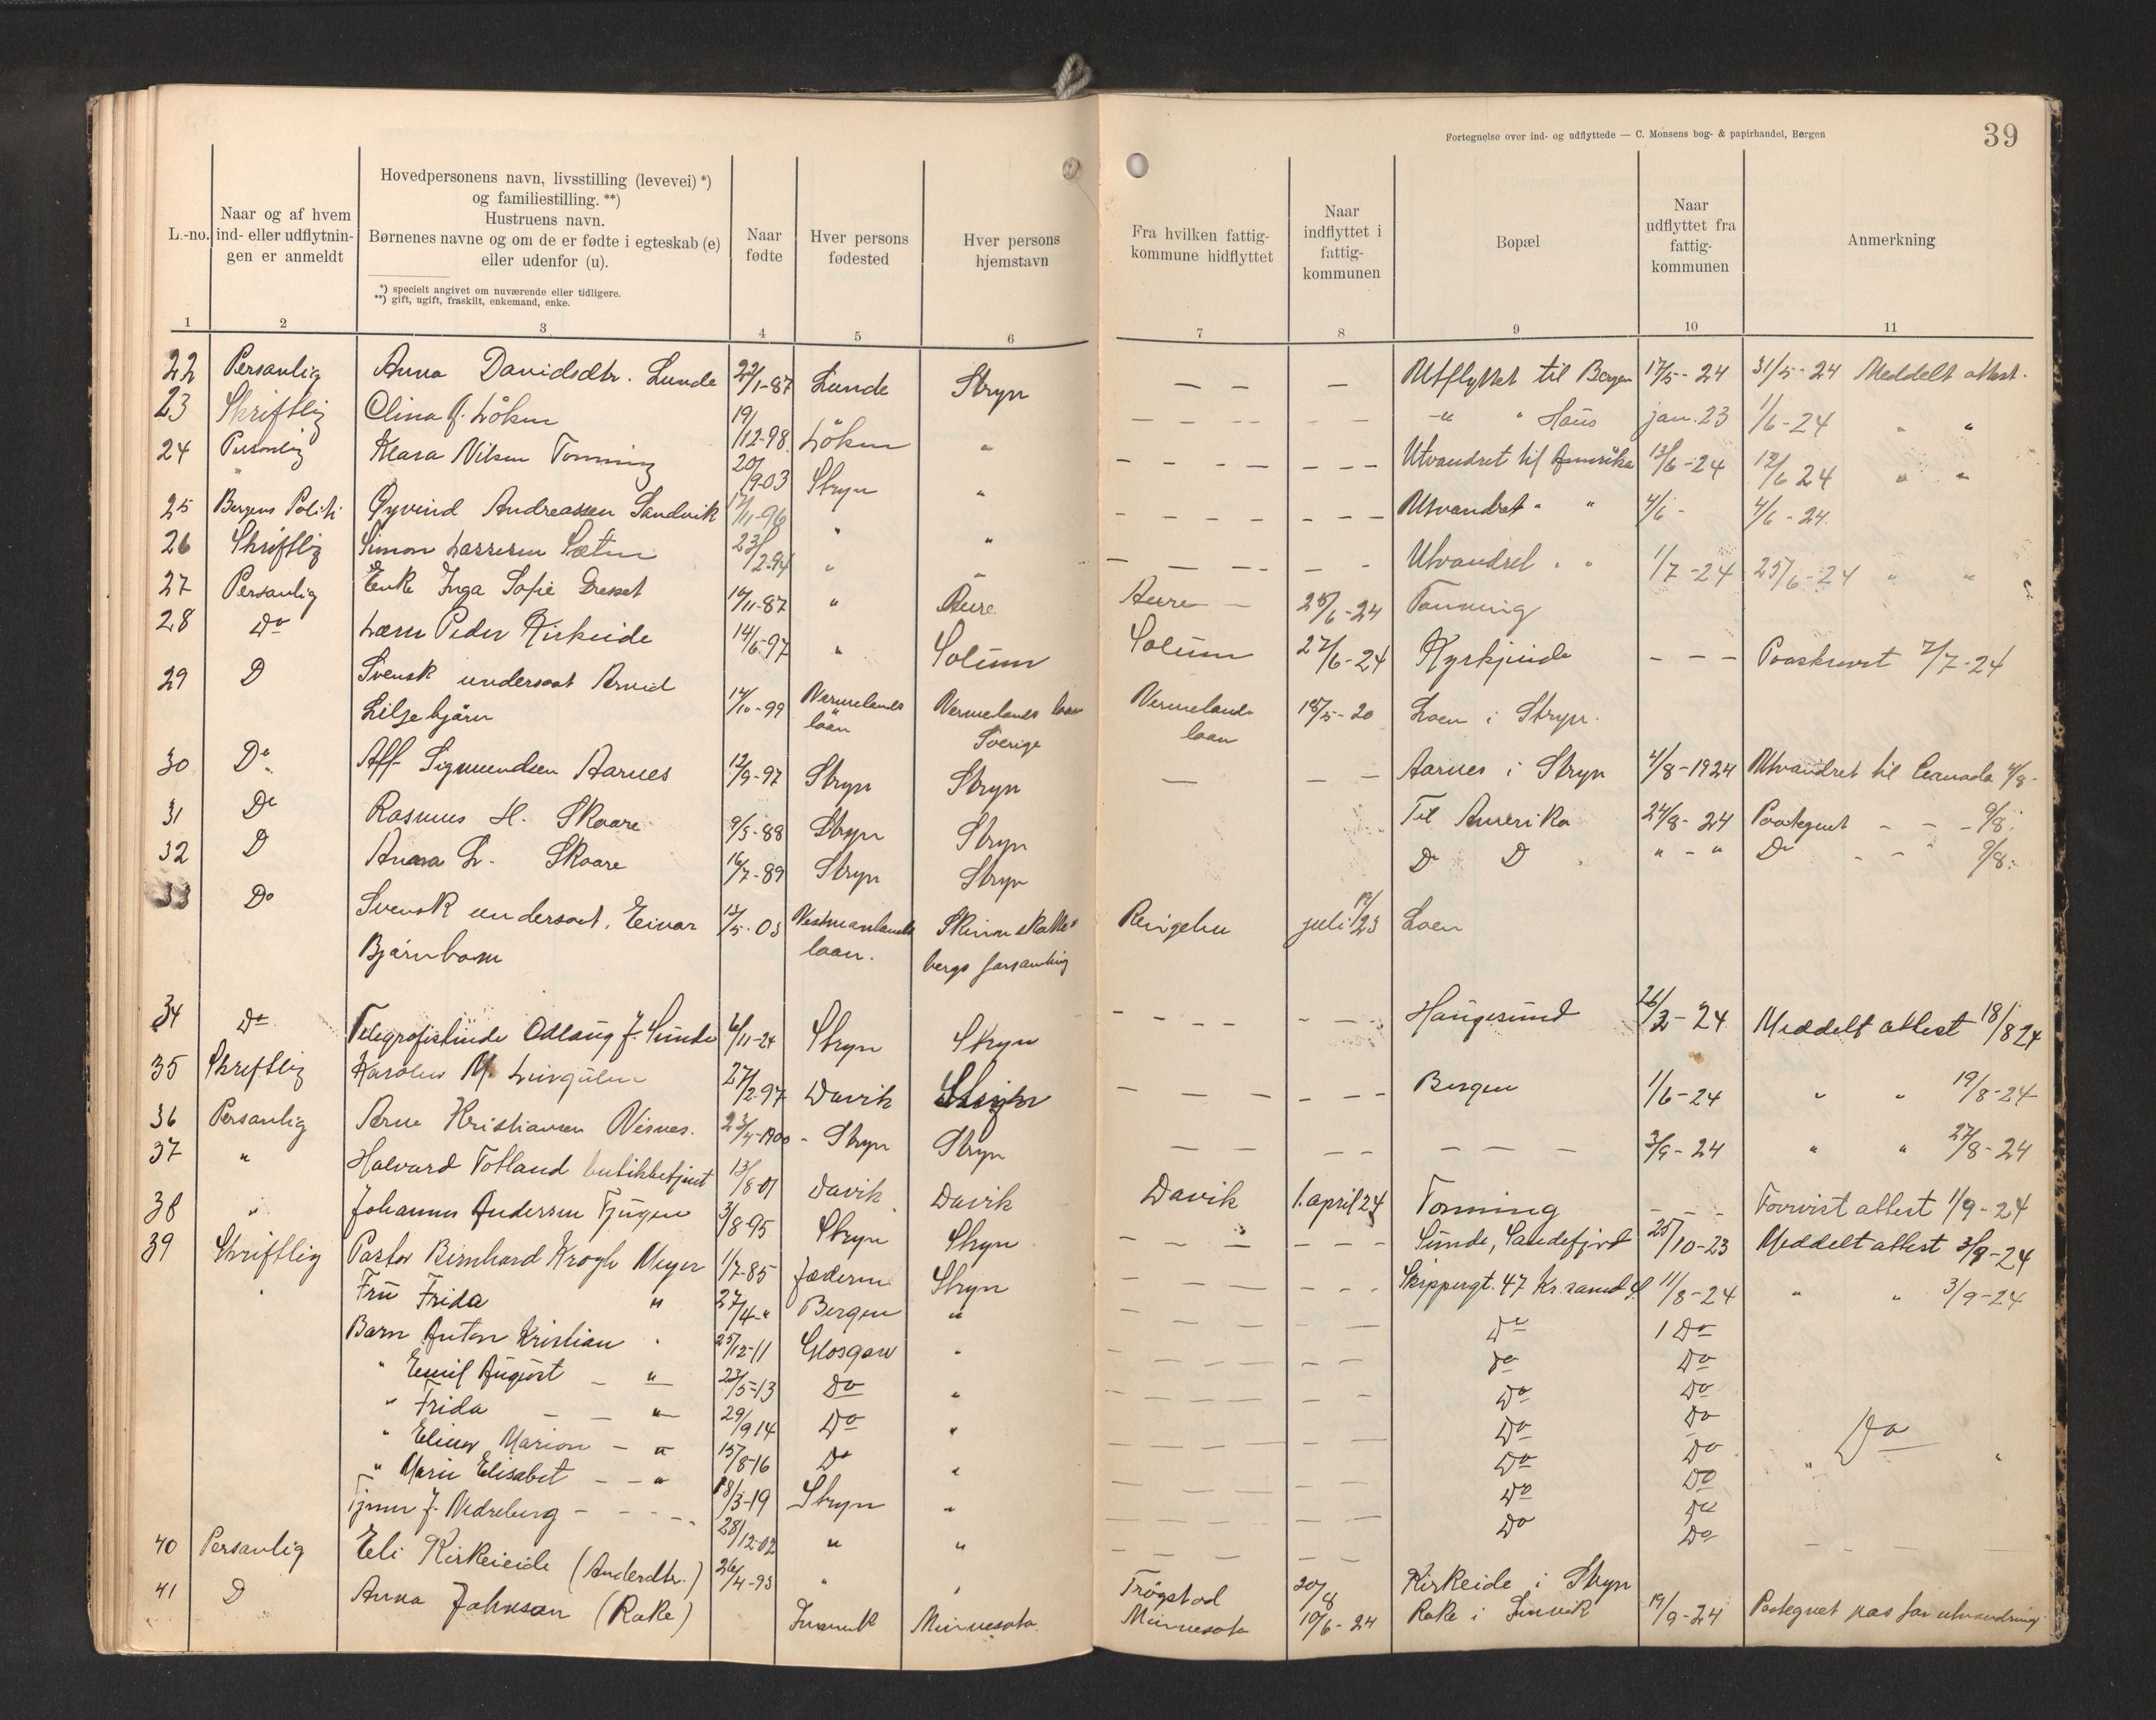 Fortegnelse over ind- og udflyttede — C. Monsens bog- & papirhandel, Bergen
39
L.-no.
Naar og af hvem
ind- eller udflytnin-
gen er anmeldt
Hovedpersonens navn, livsstilling (levevei) *)
og familiestilling. **)
Hustruens navn.
Børnenes navne og om de er fødte i egteskab (e)
eller udenfor (u).
*) specielt angivet om nuværende eller tidligere.
**) gift, ugift, fraskilt, enkemand, enke.
Naar
fødte
Hver persons
fødested
Hver persons
hjemstavn
Fra hvilken fattig-
kommune hidflyttet
Naar
indflyttet i
fattig-
kommunen
Bopæl
Naar
udflyttet fra
fattig-
kommunen
Anmerkning
1 2 3 4 5 6 7 8 9 10 11
22 Personlig Anna Davidsdtr. Lunde 22/1-87 Lunde Stryn — — — Utflyttet til Bergen 17/5-24 31/5-24 Meddelt attest.
23 Skriftlig Løken 19/12-98 Løken " — — — " " Haus jan. 23 1/6-24 " "
24 Personlig Klara Nilsen Tonning 20/9-03 Stryn " — — — Utvandret til Amerika 13/6-24 12/6 24 " "
25 Bergens Politi Øyvind Andreassen Sandvik 17/11-96 " " — — — Utvandret " " 4/6 - 4/6-24.
26 Skriftlig Simon Larssen Sæten 23/2-94 " " — — — Utvandret " " 1/7-24 25/6-24 " "
27 Personlig Enke Inga Sofie 19/11-87 " Aure Aure — 25/6-24 Tonning
28 Do Peder Kirkeide 14/6-97 " Solum Solum 27/6-24 Kyrkjeide — — — 7/7-24
29 D Svensk undersaat Arvid
Liljebjørn 14/10-99 Vermelands
laan Vermelands laan
Sverige Vermelands
laan 18/5-20 Loen i Stryn.
30 Do Alf Sigmundsen Aarnes 12/9-97 Stryn Stryn — — — Aarnes i Stryn 4/8-1924 Utvandret til Canada 4/8-
31 Do Rasmus H. Skaare 9/3-88 Stryn Stryn Til Amerika 24/8-24 Paategnet - - 9/8.
32 D Anna L. Skaare 16/7-89 Stryn Stryn D D " - " Do - - 9/8.
33 Do Svensk undersaat, Einar
Bjørnbom 12/5-03 Vestmanlands
laan. Skinnskatte-
bergs forsamling Ringebu juli 23 Loen
34 Do Telegrafistinde Odlaug J. Sunde 6/11-24 Stryn Stryn — — — Haugesund 26/2-24 Meddelt attest 18/8 24
35 Skriftlig Karolus M. 27/2-97 Davik Stryn — — — Bergen 1/6-24 " " 19/8-24
36 Personlig Arne Kristiansen Visnes. 23/4-1900 - Stryn Stryn — — — — — — 3/9-24 " " 27/8-24
37 " Halvard Totland butikbetjent 13/8-01 Davik Davik Davik 1. april 24 Tonning - - - Forevist attest 1/9-24
38 " Johannes Andersen Tjugen 3/8-95 Stryn Stryn — — — Sunde, Sandefjord 25/10-23 Meddelt attest 3/9-24
39 Skriftlig Pastor Bernhard Krogh Meyer 1/7-85 Jæderen Stryn — — — Skippergt. 47 Kr.sand S. 11/8-24 " " 3/9-24
Fru Frida " 27/4-" Bergen " — — — Do 1 Do
Barn Anton Kristian " 25/12-11 Glosgow " — — — Do Do
" Emil August — " 23/5-13 Do " — — — Do Do
" Frida — — " 29/9 14 Do " — — — Do Do Do
" Elinor Marion — " 15/8-16 Do " — — — Do Do
" Marie Elisabet — — " 18/3-19 Stryn " — — — Do Do
J. Nedreberg — — — 28/12-02 " " — — — Do Do
40 Personlig Eli Kirkeeide (Andersdtr.) 26/4-93 " " Trøgstad 20/8 Kirkeide i Stryn
41 D Anna Johnson (Rake) Innvik Minnesota. Minnesota 10/6-24 Rake i Innvik 19/9-24 Paategnet pas for utvandring